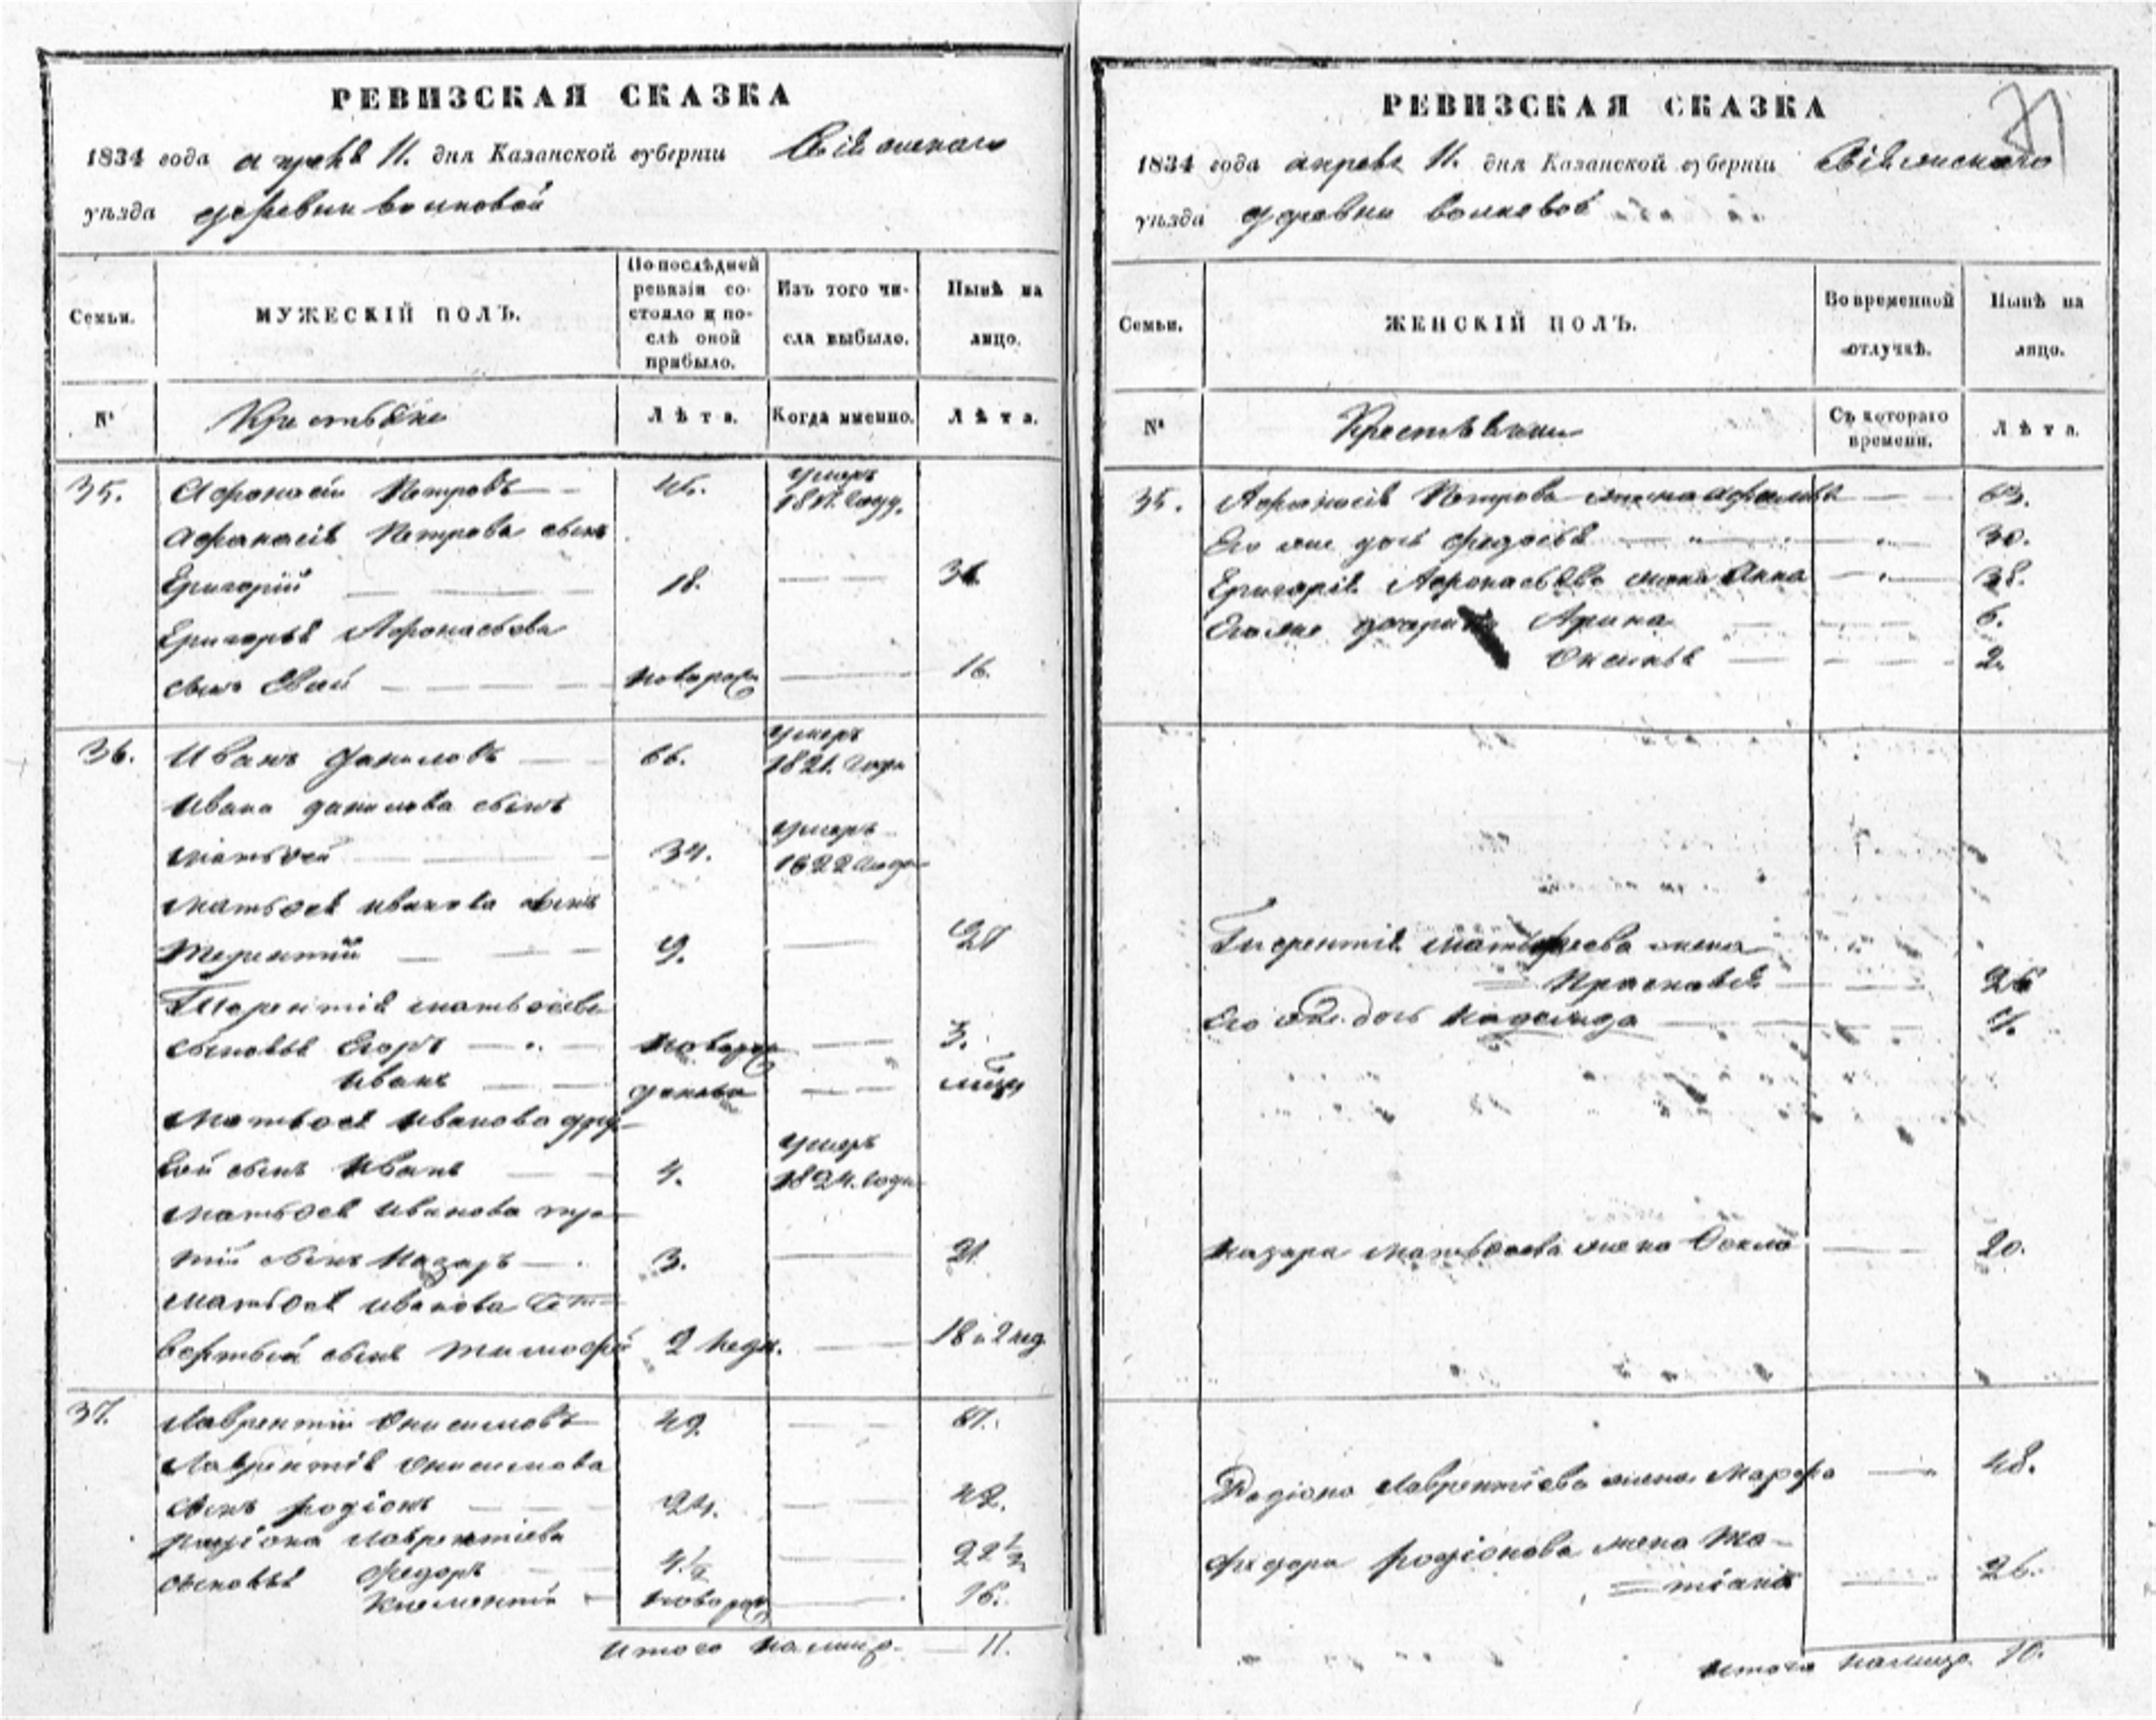 РЕВИЗСКАЯ СКАЗКА
1834 года апреля 11. дня Казанской губернии Свіяжскаго
уѣзда деревни волковой
Семьи.
МУЖЕСКІЙ ПОЛЪ.
По послѣдней ревизіи состояло и послѣ оной прибыло.
Изъ того числа выбыло.
Нынѣ на лицо.
№
Крестьяне
Лѣта.
Когда именно.
Лѣта.
35. Афонасій Петровъ 45. умеръ 1817. году.
Афонасія Петрова сынъ
Григорій 18. 36
Григорья Афонасьева
сынъ новорож 16.
36. Иванъ даниловъ 66. умеръ 1821. года
Ивана данилова сынъ
матвѳей 34. умеръ 1822 года
матвѳея иванова сынъ
терентій 9. 27
Терентія матвѳеева
сыновья Егоръ новорож 3.
Иванъ
матвѳея Иванова дру
гой сынъ Иванъ 4. умеръ 1824. года
матвѳея иванова тре
тій сынъ Назаръ 3. 21
матвѳея иванова чет
вертый сынъ тимофей 2 неде. 18 и 2 нед
37. Лаврентій Онисимовъ 49. 67.
Лаврентія Онисимова
сынъ родіонъ 24. 42.
родіона лаврентіева
сыновья федоръ 4½ 22½
Климентій новорож 16.
итого налицо. 11.
РЕВИЗСКАЯ СКАЗКА
71
1834 года апреля 11. дня Казанской губерніи Свіяжскаго
уѣзда деревни волковой
Семьи.
ЖЕНСКІЙ ПОЛЪ.
Во временной отлучкѣ.
Нынѣ на лицо.
№
Крестьянки
Съ котораго времени.
Лѣта.
35. Афонасія Петрова жена 63.
Его же дочь федосья 30.
Григорія Афонасьева жена Анна 38.
Его же дочери Арина 6.
Оксинья 2.
Терентія матвѳеева жена
Прасковья 26
Его дочь надежда
Назара матвѳеева жена Ѳекла 20.
Родіона лаврентіева жена Марфа 48.
федора родіонова жена Та-
тіана 26.
итого налицо. 10.